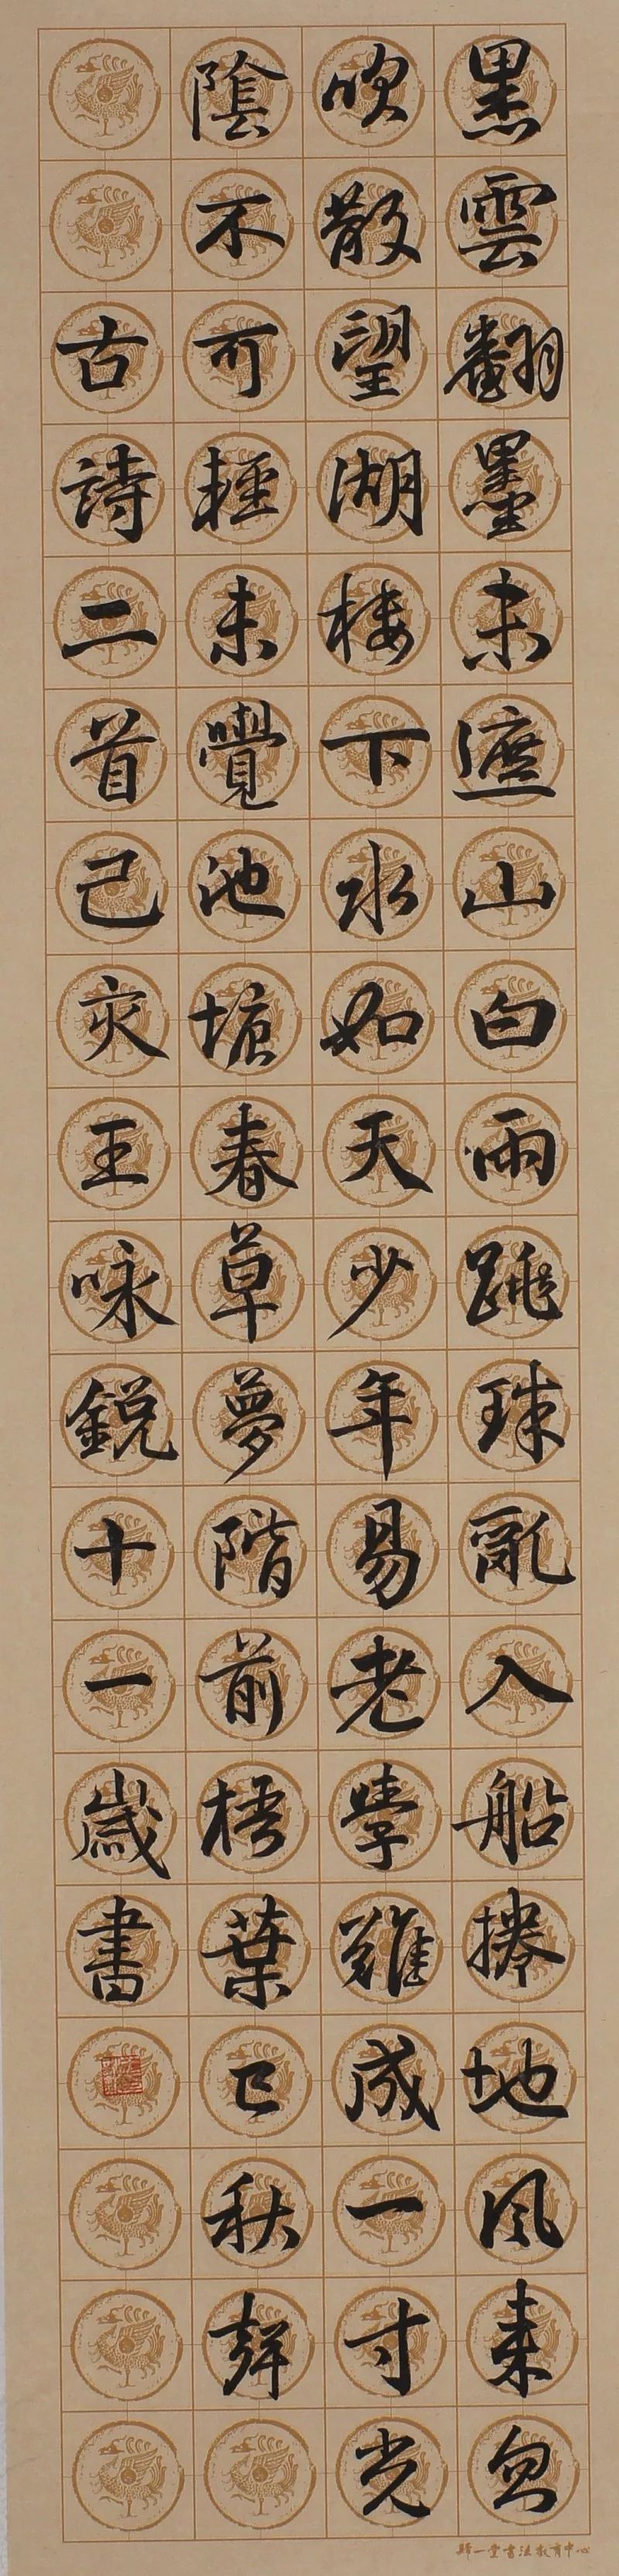 黑雲翻墨未遮山白雨跳珠亂入船捲地風來忽
吹散望湖樓下水如天少年易老學難成一寸光
陰不可輕未覺池塘春草夢階前梧葉已秋聲
古詩二首己亥王咏銳十一歲書
一堂書法教育中心